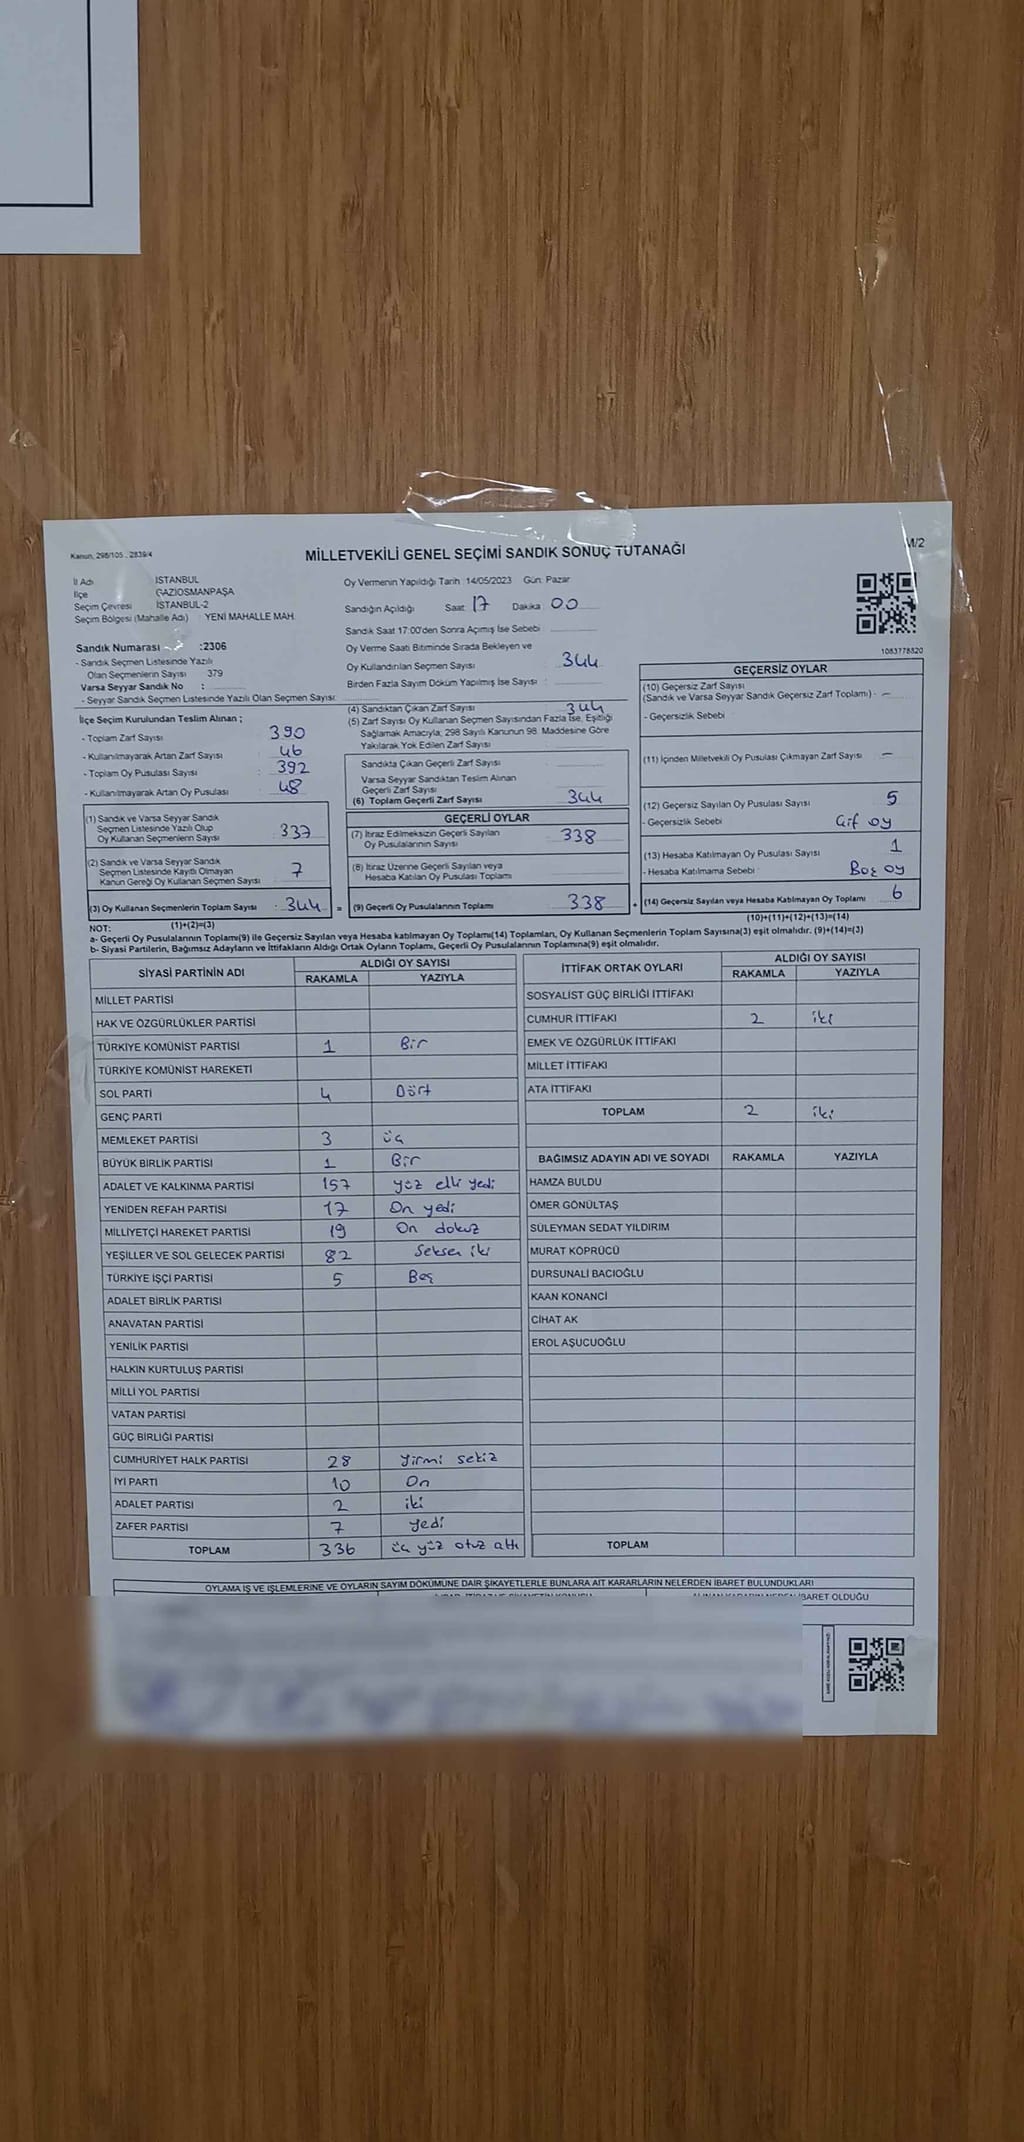 Kanun, 298/105 , 2839/4
MİLLETVEKİLİ GENEL SEÇİMİ SANDIK SONUÇ TUTANAĞI
M/2
İl Adı İSTANBUL
İlçe GAZİOSMANPAŞA
Seçim Çevresi İSTANBUL-2
Seçim Bölgesi (Mahalle Adı) : YENİ MAHALLE MAH.
Sandık Numarası :2306
- Sandık Seçmen Listesinde Yazılı
Olan Seçmenlerin Sayısı 379
Varsa Seyyar Sandık No :
- Seyyar Sandık Seçmen Listesinde Yazılı Olan Seçmen Sayısı:
Oy Vermenin Yapıldığı Tarih 14/05/2023 Gün: Pazar
Sandığın Açıldığı Saat 17 Dakika 00
Sandık Saat 17:00'den Sonra Açımış İse Sebebi
Oy Verme Saati Bitiminde Sırada Bekleyen ve
Oy Kullandırılan Seçmen Sayısı 344
Birden Fazla Sayım Döküm Yapılmış İse Sayısı :
1083778820
İlçe Seçim Kurulundan Teslim Alınan ;
- Toplam Zarf Sayısı : 390
- Kullanılmayarak Artan Zarf Sayısı : 46
- Toplam Oy Pusulası Sayısı : 392
- Kullanılmayarak Artan Oy Pusulası : 48
(1) Sandık ve Varsa Seyyar Sandık
Seçmen Listesinde Yazılı Olup
Oy Kullanan Seçmenlerin Sayısı : 337
(2) Sandık ve Varsa Seyyar Sandık
Seçmen Listesinde Kayıtlı Olmayan
Kanun Gereği Oy Kullanan Seçmen Sayısı : 7
(3) Oy Kullanan Seçmenlerin Toplam Sayısı : 344 =
(1)+(2)=(3)
(4) Sandıktan Çıkan Zarf Sayısı : 344
(5) Zarf Sayısı Oy Kullanan Seçmen Sayısından Fazla İse, Eşitliği
Sağlamak Amacıyla, 298 Sayılı Kanunun 98. Maddesine Göre
Yakılarak Yok Edilen Zarf Sayısı
Sandıkta Çıkan Geçerli Zarf Sayısı :
Varsa Seyyar Sandıktan Teslim Alınan
Geçerli Zarf Sayısı
(6) Toplam Geçerli Zarf Sayısı : 344
GEÇERLİ OYLAR
(7) İtiraz Edilmeksizin Geçerli Sayılan
Oy Pusulalarının Sayısı : 338
(8) İtiraz Üzerine Geçerli Sayılan veya
Hesaba Katılan Oy Pusulası Toplamı :
(9) Geçerli Oy Pusulalarının Toplamı : 338 +
GEÇERSİZ OYLAR
(10) Geçersiz Zarf Sayısı
(Sandık ve Varsa Seyyar Sandık Geçersiz Zarf Toplamı) : -
- Geçersizlik Sebebi
(11) İçinden Milletvekili Oy Pusulası Çıkmayan Zarf Sayısı : -
(12) Geçersiz Sayılan Oy Pusulası Sayısı : 5
- Geçersizlik Sebebi : Çif oy
(13) Hesaba Katılmayan Oy Pusulası Sayısı : 1
- Hesaba Katılmama Sebebi : Boş oy
(14) Geçersiz Sayılan veya Hesaba Katılmayan Oy Toplamı : 6
(10)+(11)+(12)+(13)=(14)
NOT:
a- Geçerli Oy Pusulalarının Toplamı(9) ile Geçersiz Sayılan veya Hesaba katılmayan Oy Toplamı(14) Toplamları, Oy Kullanan Seçmenlerin Toplam Sayısına(3) eşit olmalıdır. (9)+(14)=(3)
b- Siyasi Partilerin, Bağımsız Adayların ve İttifakların Aldığı Ortak Oyların Toplamı, Geçerli Oy Pusulalarının Toplamına(9) eşit olmalıdır.
SİYASİ PARTİNİN ADI ALDIĞI OY SAYISI
RAKAMLA YAZIYLA
MİLLET PARTİSİ
HAK VE ÖZGÜRLÜKLER PARTİSİ
TÜRKİYE KOMÜNİST PARTİSİ 1 Bir
TÜRKİYE KOMÜNİST HAREKETİ
SOL PARTİ 4 Dört
GENÇ PARTİ
MEMLEKET PARTİSİ 3 üç
BÜYÜK BİRLİK PARTİSİ 1 Bir
ADALET VE KALKINMA PARTİSİ 157 yüz elli yedi
YENİDEN REFAH PARTİSİ 17 On yedi
MİLLİYETÇİ HAREKET PARTİSİ 19 On dokuz
YEŞİLLER VE SOL GELECEK PARTİSİ 82 Seksen iki
TÜRKİYE İŞÇİ PARTİSİ 5 Beş
ADALET BİRLİK PARTİSİ
ANAVATAN PARTİSİ
YENİLİK PARTİSİ
HALKIN KURTULUŞ PARTİSİ
MİLLİ YOL PARTİSİ
VATAN PARTİSİ
GÜÇ BİRLİĞİ PARTİSİ
CUMHURİYET HALK PARTİSİ 28 Yirmi sekiz
İYİ PARTİ 10 On
ADALET PARTİSİ 2 iki
ZAFER PARTİSİ 7 yedi
TOPLAM 336 üç yüz otuz altı
İTTİFAK ORTAK OYLARI ALDIĞI OY SAYISI
RAKAMLA YAZIYLA
SOSYALİST GÜÇ BİRLİĞİ İTTİFAKI
CUMHUR İTTİFAKI 2 iki
EMEK VE ÖZGÜRLÜK İTTİFAKI
MİLLET İTTİFAKI
ATA İTTİFAKI
TOPLAM 2 iki
BAĞIMSIZ ADAYIN ADI VE SOYADI RAKAMLA YAZIYLA
HAMZA BULDU
ÖMER GÖNÜLTAŞ
SÜLEYMAN SEDAT YILDIRIM
MURAT KÖPRÜCÜ
DURSUNALİ BACIOĞLU
KAAN KONANCİ
CİHAT AK
EROL AŞUCUOĞLU
TOPLAM
OYLAMA İŞ VE İŞLEMLERİNE VE OYLARIN SAYIM DÖKÜMÜNE DAİR ŞİKAYETLERLE BUNLARA AİT KARARLARIN NELERDEN İBARET BULUNDUKLARI
İBARET OLDUĞU